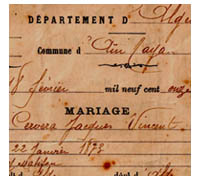 DÉPARTEMENT D'Alger
Commune d'Aïn Taya
18 février mil neuf cent onze
MARIAGE
Cervera Jacques Vincent
22 Janvier 1873